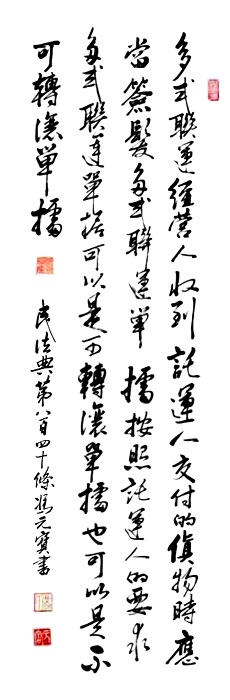 多式聯運經營人收到託運人交付的貨物時應
當簽髮多式聯運單據按照託運人的要求
多式聯運單據可以是可轉讓單據也可以是不
可轉讓單據
民法典第八百四十條馮元寶書